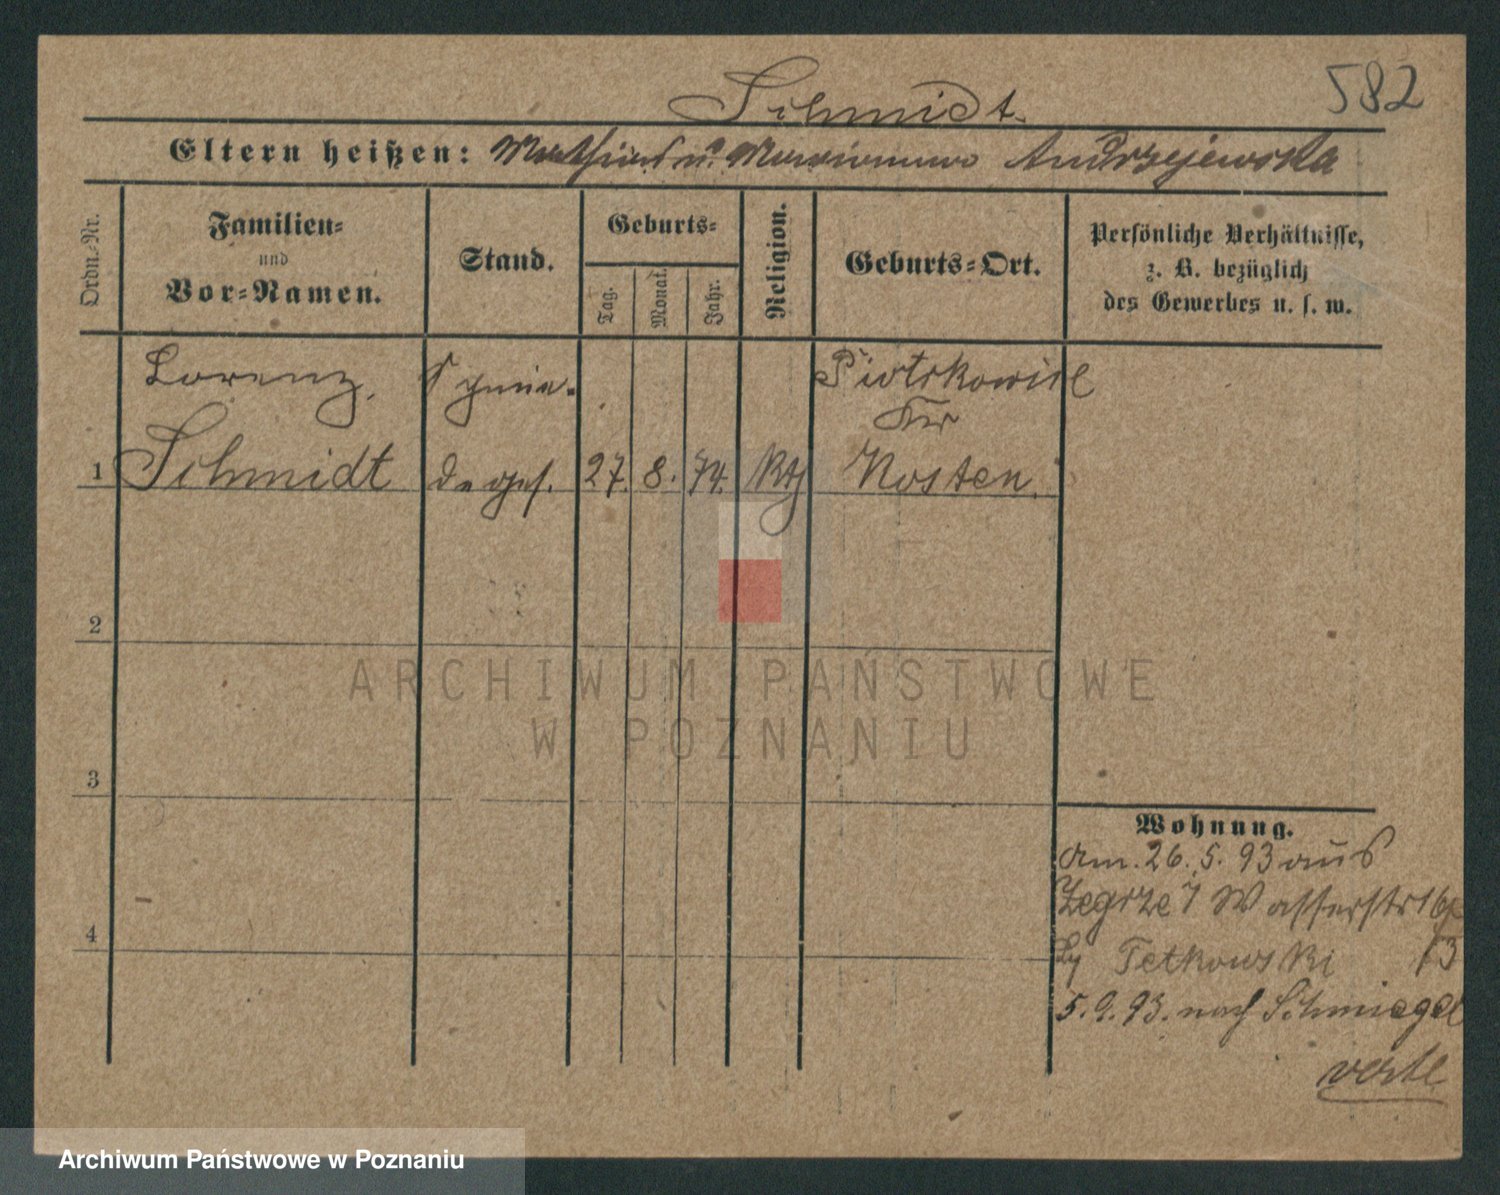 582
Schmidt.
Eltern heißen: Mathias u. Marianna Andrzejewska
Ordn.-Nr.
Familien-
und
Vor-Namen.
Stand.
Geburts-
Tag.
Monat.
Jahr.
Religion.
Geburts-Ort.
Persönliche Verhältnisse,
z. B. bezüglich
des Gewerbes u. s. w.
Lorenz,
Piotrkowice
Kr
1 Schmidt 27. 8. 74. Kth Kosten.
2
3
4
Wohnung.
Am. 26.5.93 aus
Zegrze Wasserstr 16
Tetkowski 13
5.9.93. nach Schmiegel
verte
ARCHIWUM PAŃSTWOWE
W POZNANIU
Archiwum Państwowe w Poznaniu